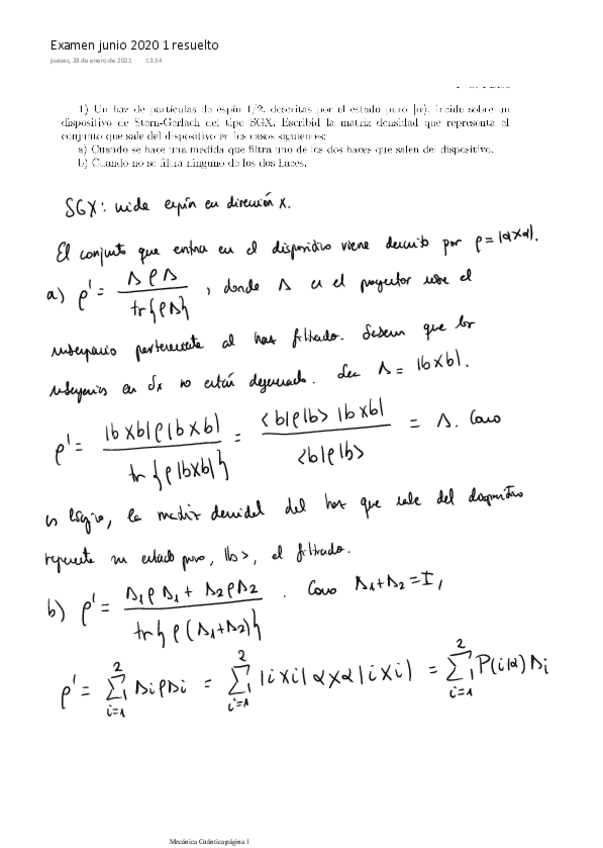 Examen junio 2020 1 resuelto
jueves, 28 de enero de 2021 13:34
1) Un haz de partículas de espín 1/2, descritas por el estado puro |α⟩, incide sobre un
dispositivo de Stern-Gerlach del tipo SGX. Escribid la matriz densidad que representa el
conjunto que sale del dispositivo en los casos siguientes:
a) Cuando se hace una medida que filtra uno de los dos haces que salen del dispositivo.
b) Cuando no se filtra ninguno de los dos haces.
SGX: mide espín en dirección x.
El conjunto que entra en el dispositivo viene descrito por ρ=|α⟩⟨α|.
a) ρ' = ΛρΛ / tr{ρΛ}, donde Λ es el proyector sobre el
subespacio perteneciente al haz filtrado. Sabemos que los
subespacios en Sx no están degenerados. Sea Λ = |b⟩⟨b|.
ρ' = |b⟩⟨b|ρ|b⟩⟨b| / tr{ρ|b⟩⟨b|} = ⟨b|ρ|b⟩ |b⟩⟨b| / ⟨b|ρ|b⟩ = Λ. Como
es lógico, la matriz densidad del haz que sale del dispositivo
representa un estado puro, |b⟩, el filtrado.
b) ρ' = Λ1ρΛ1 + Λ2ρΛ2 / tr{ρ(Λ1+Λ2)} . Como Λ1+Λ2 = I,
ρ' = Σ_{i=1}^{2} ΛiρΛi = Σ_{i=1}^{2} |i⟩⟨i|α⟩⟨α|i⟩⟨i| = Σ_{i=1}^{2} P(i|α)Λi
Mecánica Cuántica página 1